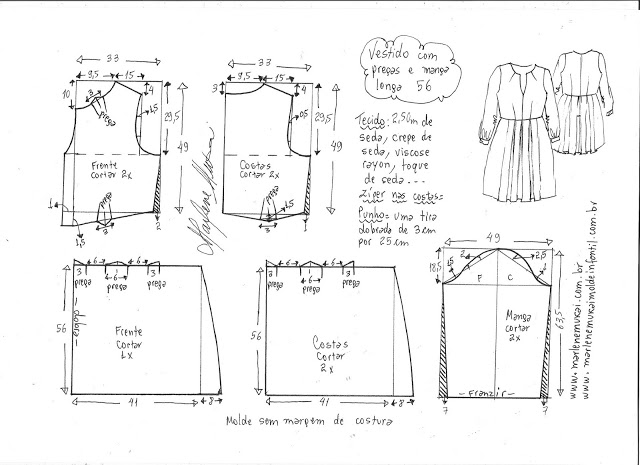 33
9,5 15
10
3
4
prega
1,5
29,5
49
Frente
cortar 2x
1
1,5
prega
3
2
Marlene Mukai
33
9,5 15
3
4
0,5
29,5
49
Costas
cortar 2x
prega
3
1,5
1
Vestido com
pregas e manga
longa 56
Tecido: 2,50m de
seda, crepe de
seda, viscose
rayon, toque
de seda...
Ziper nas costas=
Punho= uma tira
dobrada de 3cm
por 25cm
6 6
3 6 3
prega prega prega
56
dobra
Frente
cortar
1x
41 8
6 6
3 6 3
prega prega prega
56
Costas
cortar
2x
41 8
49
18,5
1,5
2
2,5
F C
Manga
cortar
2x
63,5
-Franzir-
7 7
www.marlenemukai.com.br
www.marlenemukaimoldeinfantil.com.br
Molde sem margem de costura